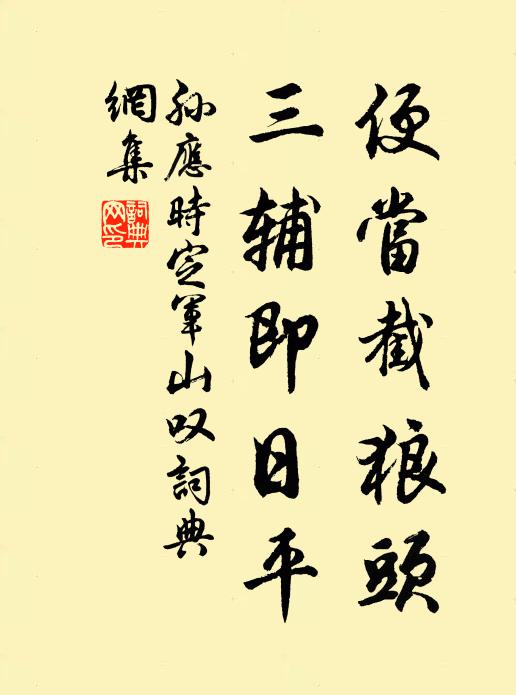 便當截狼頭
三辅即日平
孙應時定軍山叹詞典
網集
詞典
网印